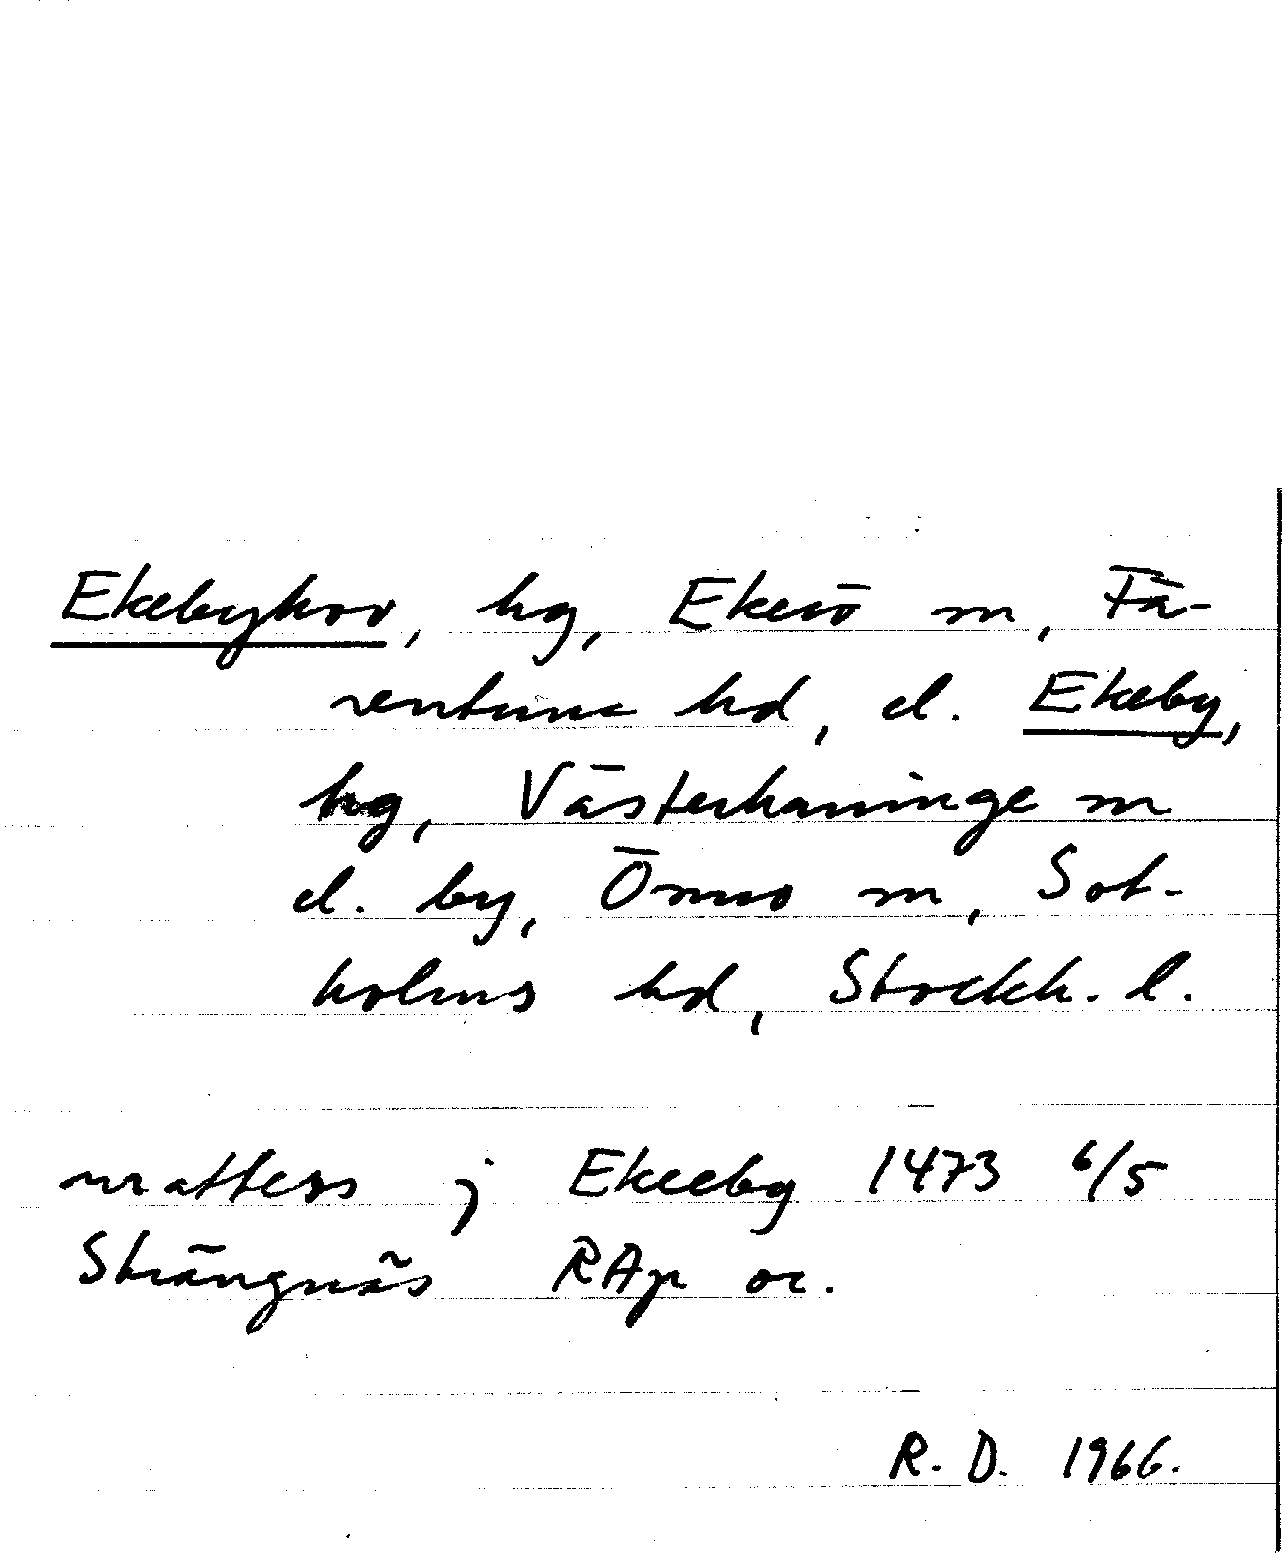 Ekebyhov, hg, Ekerö sn, Fä-
rentuna hd, el. Ekeby,
hg, Västerhaninge sn
el. by, Ornö sn, Sot-
holms hd, Stockh. l.
mattess j Ekeeby 1473 6/5
Strängnäs RAp or.
R. D. 1966.